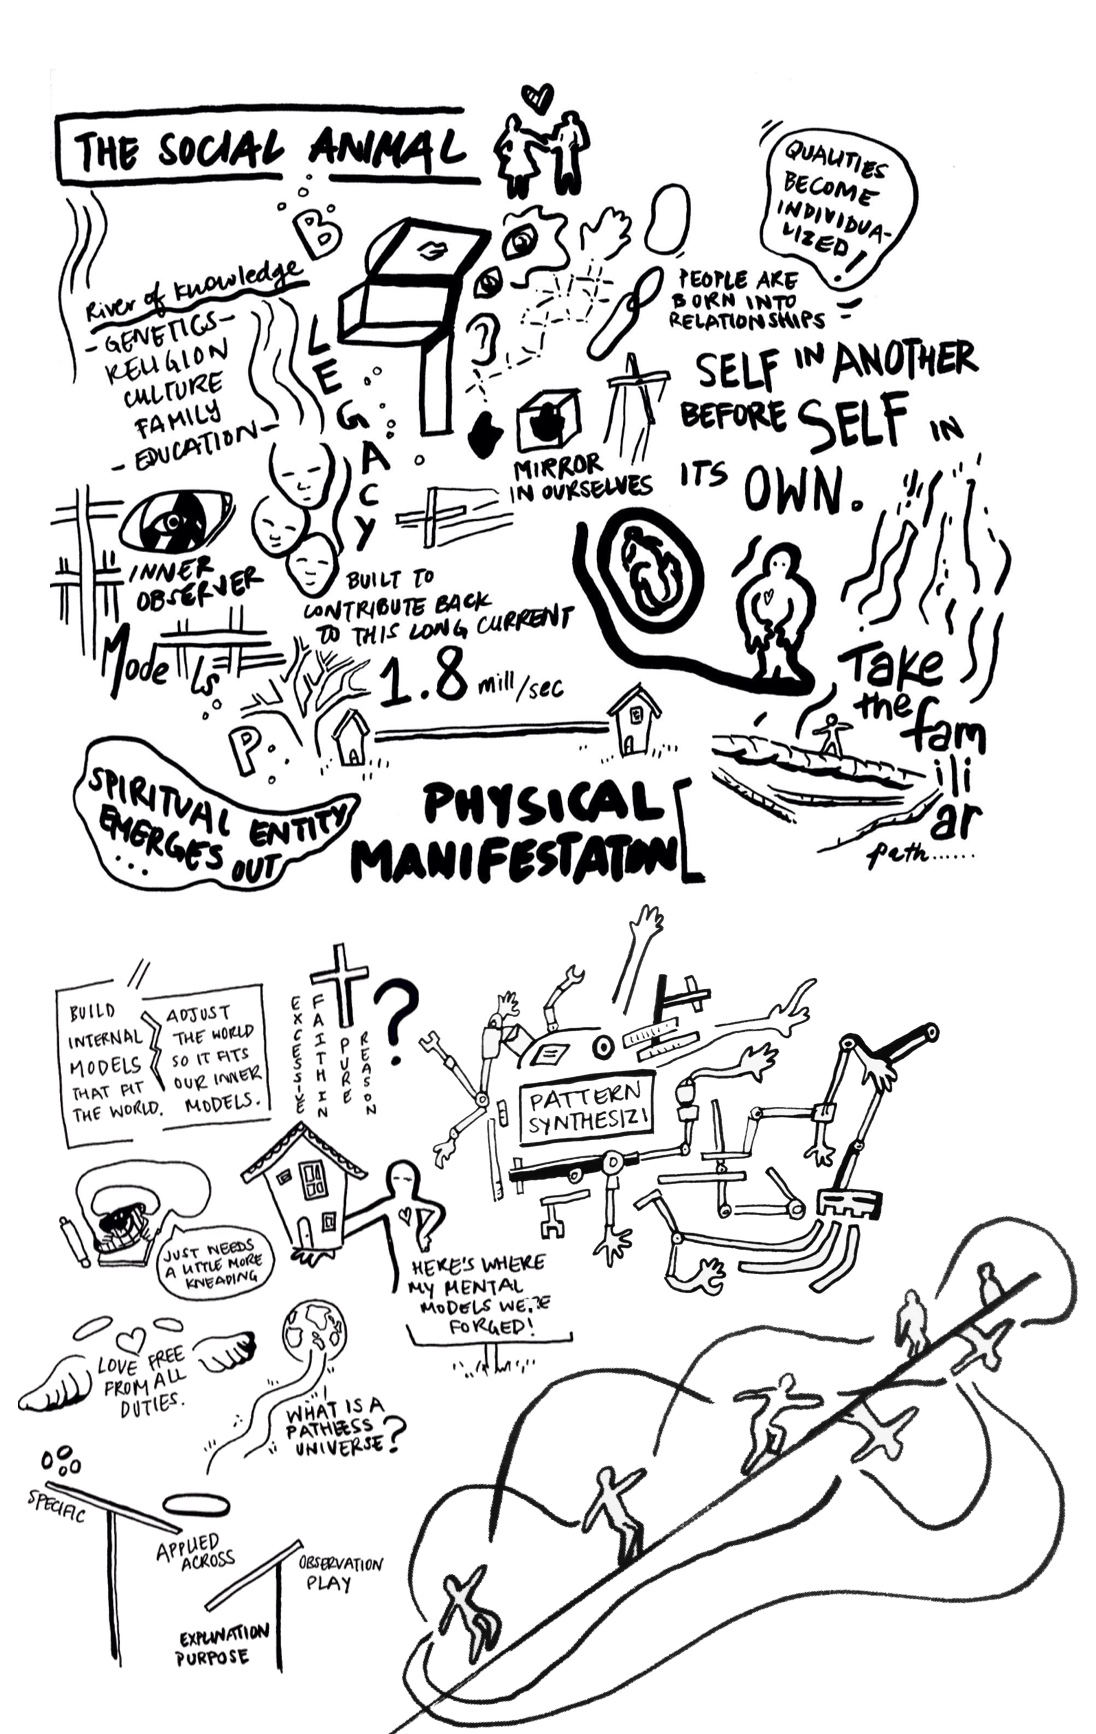 THE SOCIAL ANIMAL
QUALITIES
BECOME
INDIVIDUA-
LIZED!
B
River of knowledge
- GENETICS -
RELIGION
CULTURE
FAMILY
- EDUCATION -
LEGACY
PEOPLE ARE
BORN INTO
RELATIONSHIPS
SELF IN ANOTHER
BEFORE SELF IN
ITS OWN.
MIRROR
IN OURSELVES
INNER
OBSERVER
BUILT TO
CONTRIBUTE BACK
TO THIS LONG CURRENT
Models
1.8 mill/sec
P
Take
the fam
ili
ar
path......
SPIRITUAL ENTITY
EMERGES OUT
...
PHYSICAL
MANIFESTATON
BUILD
INTERNAL
MODELS
THAT FIT
THE WORLD.
ADJUST
THE WORLD
SO IT FITS
OUR INNER
MODELS.
EXCESSIVE
FAITH IN
PURE
REASON
?
PATTERN
SYNTHESIZ!
JUST NEEDS
A LITTLE MORE
KNEADING
HERE'S WHERE
MY MENTAL
MODELS WERE
FORGED!
LOVE FREE
FROM ALL
DUTIES.
WHAT IS A
PATHLESS
UNIVERSE?
SPECIFIC
APPLIED
ACROSS
OBSERVATION
PLAY
EXPLINATION
PURPOSE